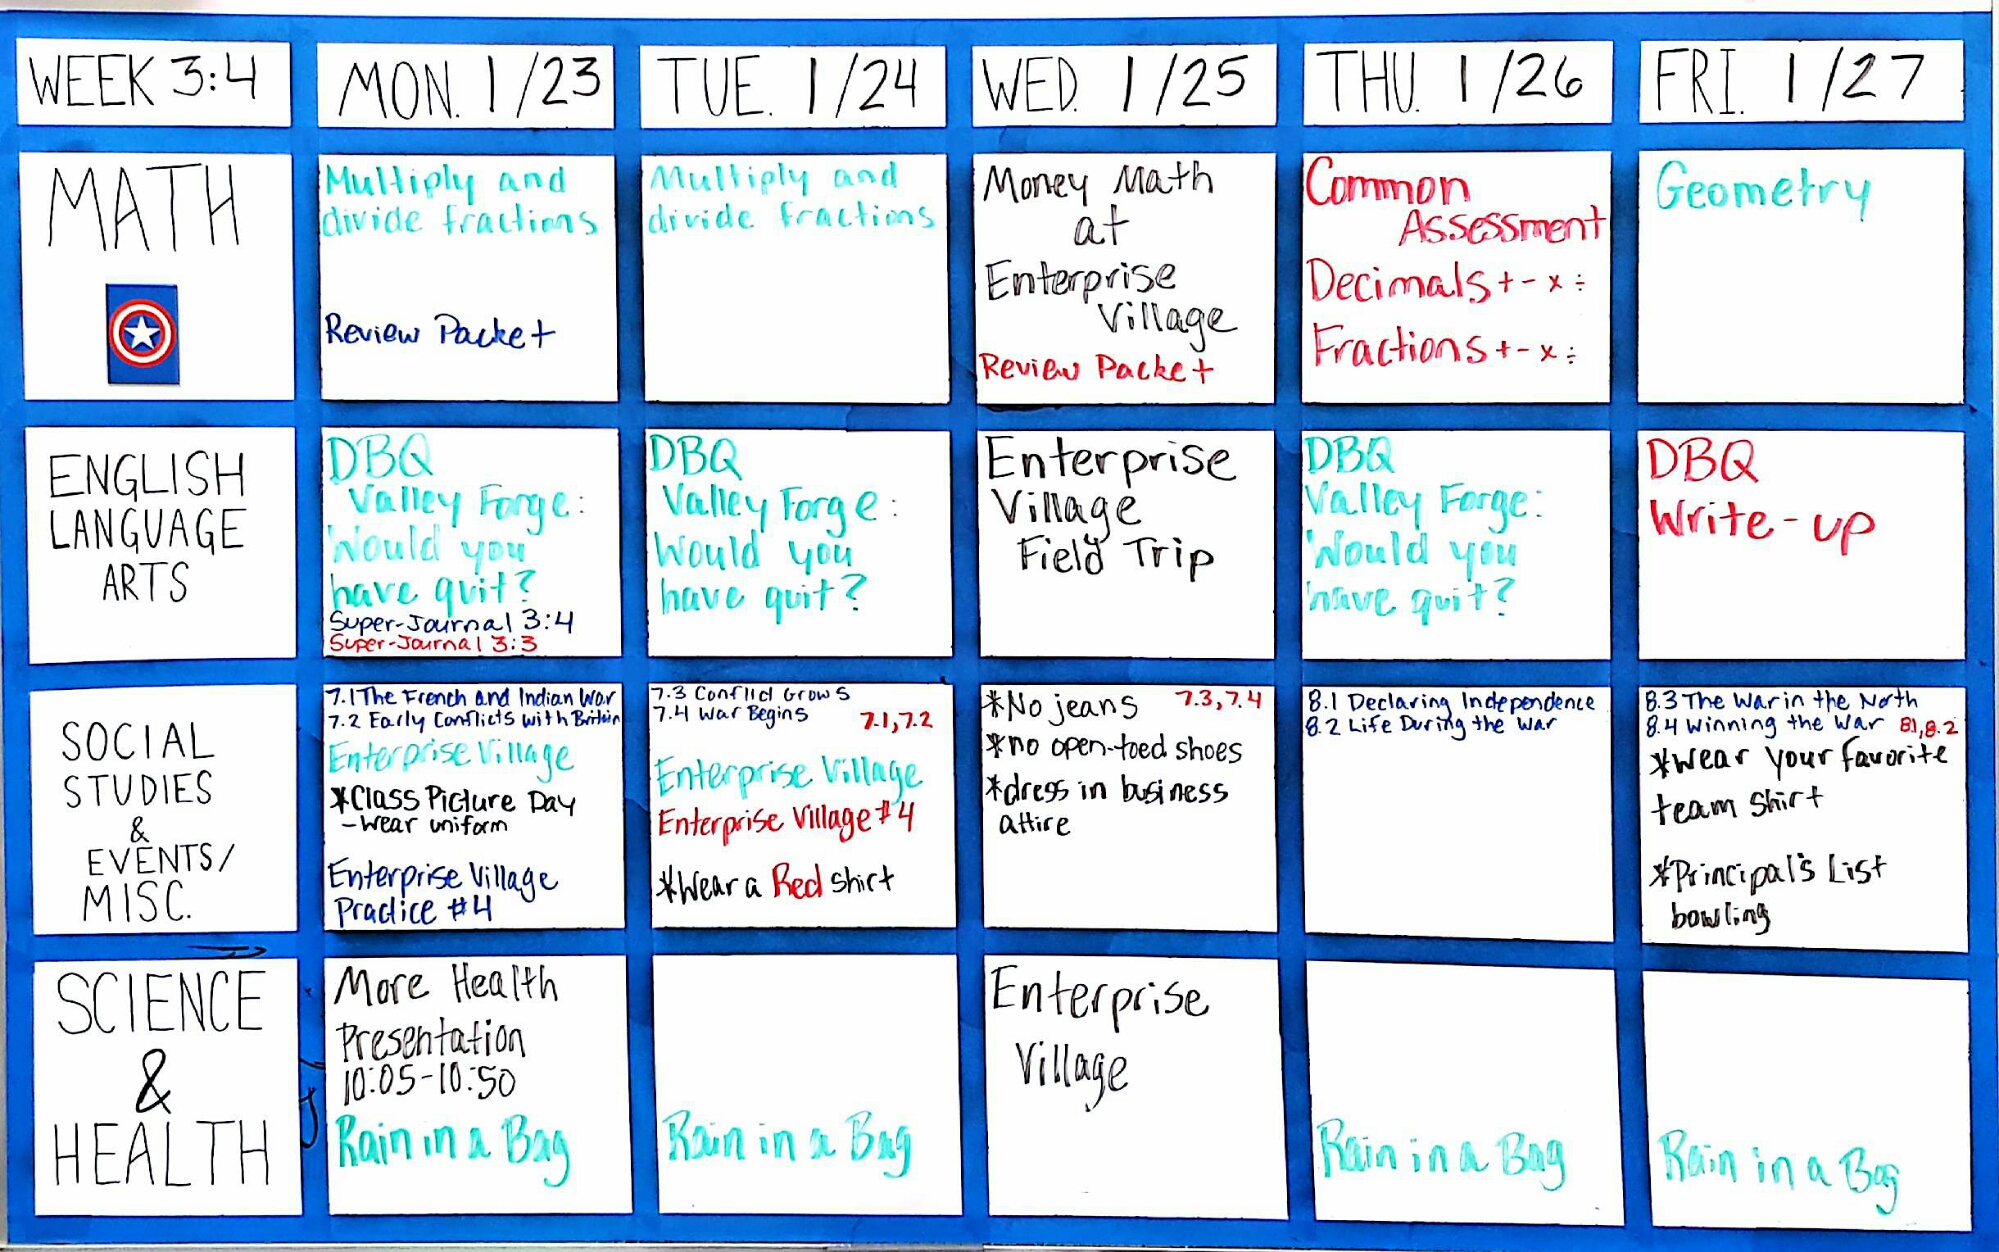 WEEK 3:4
MON. 1/23
TUE. 1/24
WED. 1/25
THU. 1/26
FRI. 1/27
MATH
Multiply and
divide fractions
Review Packet
Multiply and
divide fractions
Money Math
at
Enterprise
Village
Review Packet
Common
Assessment
Decimals + - x ÷
Fractions + - x ÷
Geometry
ENGLISH
LANGUAGE
ARTS
DBQ
Valley Forge:
Would you
have quit?
Super-Journal 3:4
Super-Journal 3:3
DBQ
Valley Forge:
Would you
have quit?
Enterprise
Village
Field Trip
DBQ
Valley Forge:
Would you
have quit?
DBQ
Write-up
SOCIAL
STUDIES
&
EVENTS/
MISC.
7.1 The French and Indian War
7.2 Early Conflicts with Britain
Enterprise Village
*Class Picture Day
-wear uniform
Enterprise Village
Practice #4
7.3 Conflict Grows
7.4 War Begins 7.1, 7.2
Enterprise Village
Enterprise Village #4
*Wear a Red shirt
*No jeans 7.3, 7.4
*no open-toed shoes
*dress in business
attire
8.1 Declaring Independence
8.2 Life During the War
8.3 The War in the North
8.4 Winning the War 8.1, 8.2
*Wear your favorite
team shirt
*Principal's List
bowling
SCIENCE
&
HEALTH
More Health
Presentation
10:05-10:50
Rain in a Bag
Rain in a Bag
Enterprise
Village
Rain in a Bag
Rain in a Bag